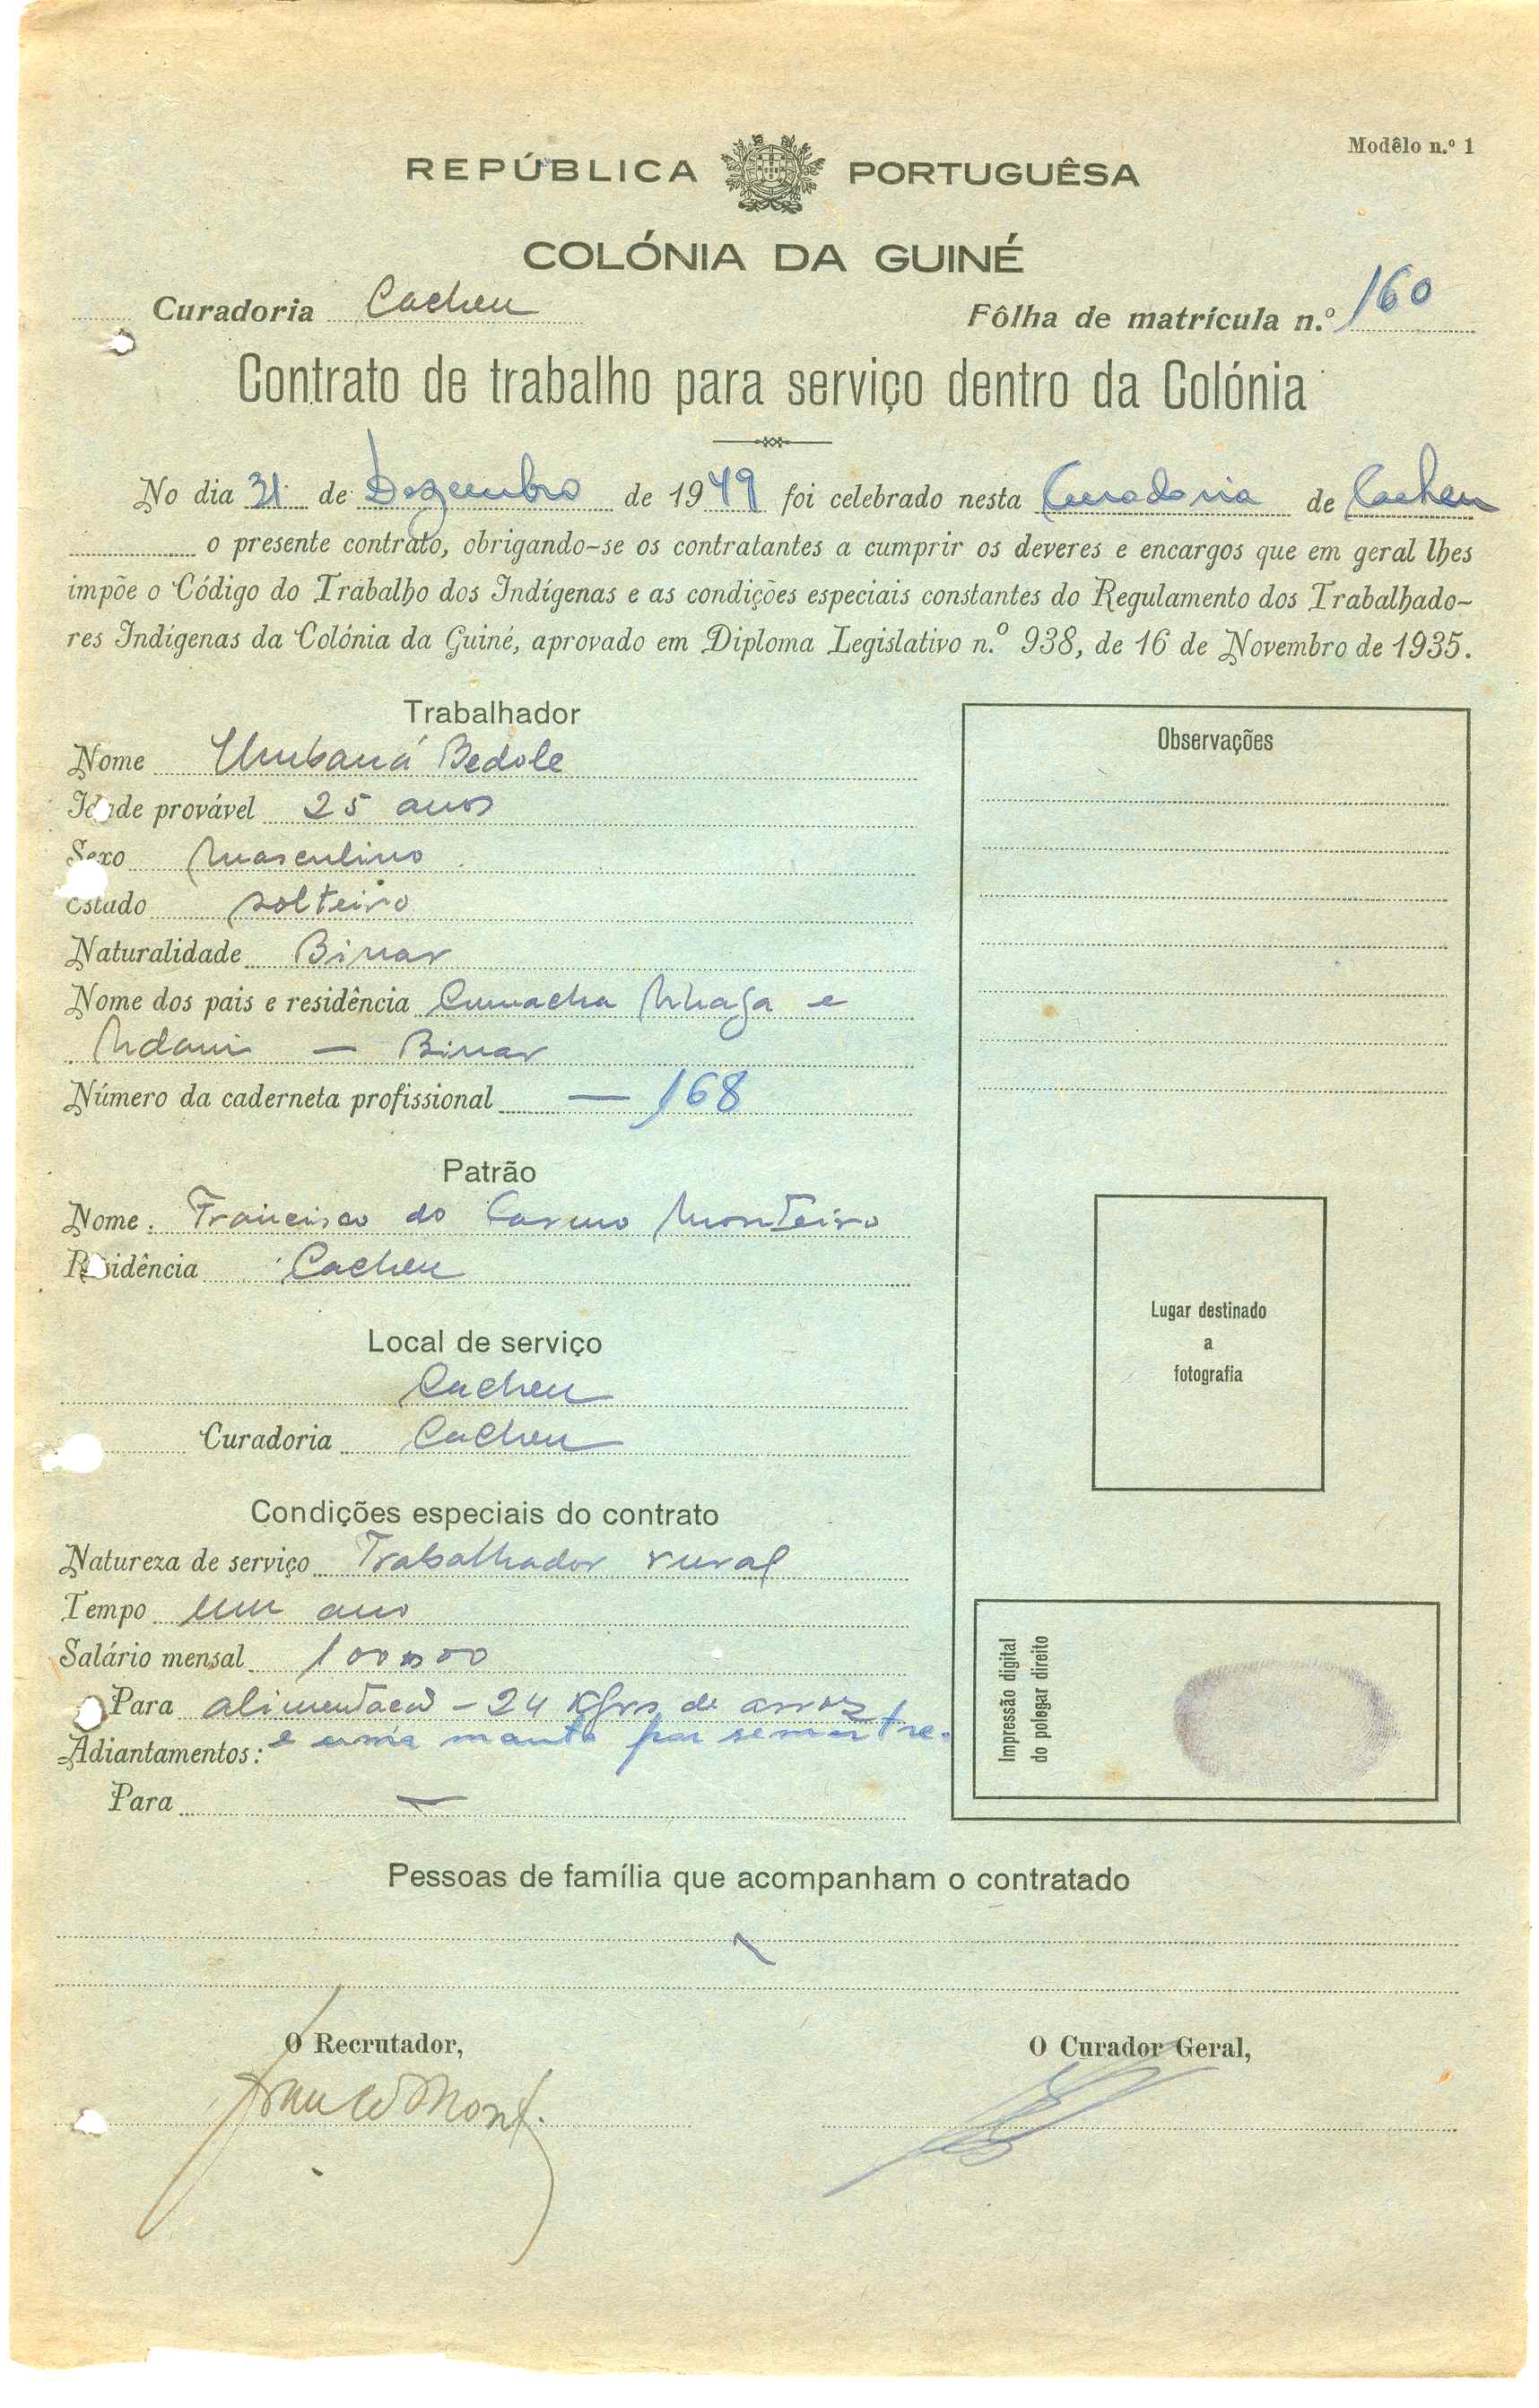 Modêlo n.º 1
REPÚBLICA PORTUGUÊSA
COLÓNIA DA GUINÉ
Curadoria Cacheu Fôlha de matrícula n.º 160
Contrato de trabalho para serviço dentro da Colónia
No dia 31 de Dezembro de 1949 foi celebrado nesta Curadoria de Cacheu
o presente contrato, obrigando-se os contratantes a cumprir os deveres e encargos que em geral lhes
impõe o Código do Trabalho dos Indígenas e as condições especiais constantes do Regulamento dos Trabalhado-
res Indígenas da Colónia da Guiné, aprovado em Diploma Legislativo n.º 938, de 16 de Novembro de 1935.
Trabalhador
Nome Umbaná Bedole
Idade provável 25 anos
Sexo Masculino
Estado solteiro
Naturalidade Binar
Nome dos pais e residência Cumacha e
— Binar
Número da caderneta profissional — 168
Patrão
Nome. Francisco do Carmo Monteiro
Residência Cacheu
Local de serviço
Cacheu
Curadoria Cacheu
Condições especiais do contrato
Natureza de serviço Trabalhador rural
Tempo um ano
Salário mensal 100$00
Para alimentacao – 24 Kgrs de arroz
Adiantamentos: e uma manta por semestre.
Para —
Observações
Lugar destinado
a
fotografia
Impressão digital
do polegar direito
Pessoas de família que acompanham o contratado
O Recrutador,
O Curador Geral,